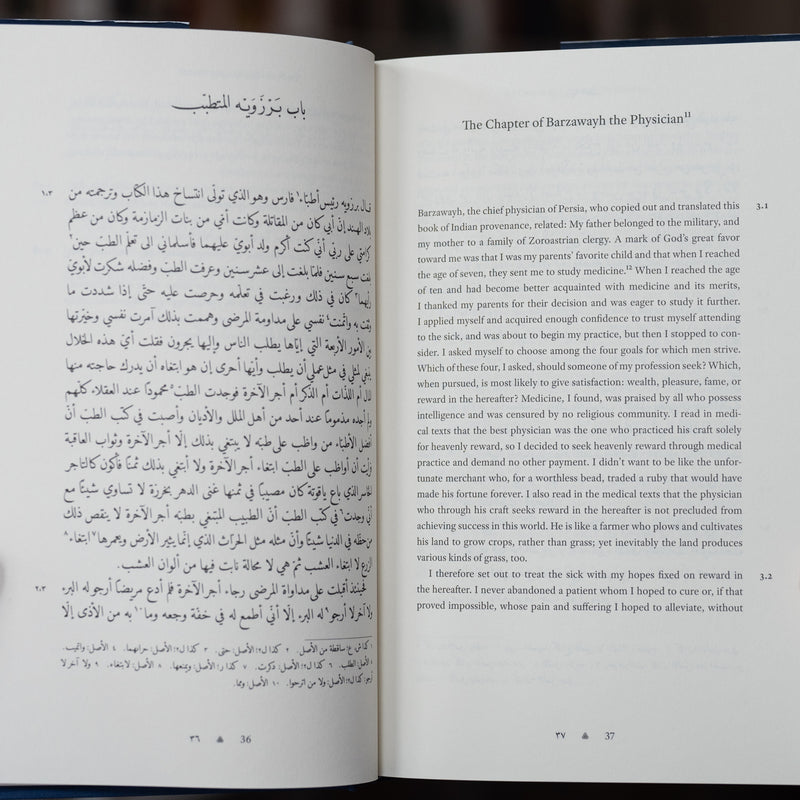 باب بَرْزَوَيْه المتطبّب
١.٣
قال برزويه رئيس أطبّاء١ فارس وهو الذي تولّى انتساخ هذا الكتاب وترجمته من
بلاد الهند إنّ أبي كان من المقاتلة وكانت أمّي من بنات الزمازمة وكان من عظم
كرامتي على ربّي أنّي كنت أكرم ولد أبويّ عليهما فأسلماني إلى تعلّم الطبّ حين٢
بلغت سبع سنين فلمّا بلغت إلى عشر سنين وعرفت الطبّ وفضله شكرت لأبويّ
رأيهما٣ كان في ذلك ورغبت في تعلّمه وحرصت عليه حتّى إذا شددت ما
وثقت به وائتمنت٤ نفسي على مداومة المرضى وهممت بذلك آمرت نفسي وخيّرتها
بين الأمور الأربعة التي إيّاها يطلب الناس وإليها يجرون فقلت أيّ هذه الخلال
ينبغي لمثلي في مثل عملي أن يطلب وأيّها أحرى إن هو ابتغاه أن يدرك حاجته منها
المال أم اللذّات أم الذكر أم أجر الآخرة فوجدت الطبّ٥ محمودًا عند العقلاء كلّهم
ولم أجده مذمومًا عند أحد من أهل الملل والأديان وأصبت في كتب الطبّ أنّ
أفضل الأطبّاء من واظب على طبّه لا يبتغي بذلك إلّا أجر الآخرة وثواب العاقبة
فرأيت أن أواظب على الطبّ ابتغاء أجر الآخرة ولا أبتغي بذلك ثمنًا فأكون كالتاجر
الخاسر الذي باع ياقوتة كان مصيبًا في ثمنها غنى الدهر بخرزة لا تساوي شيئًا مع
أنّي وجدت٦ في كتب الطبّ أنّ الطبيب المبتغي بطبّه أجر الآخرة لا ينقص ذلك
من حظّه في الدنيا شيئًا وأنّ مثله مثل الحرّاث الذي إنّما يثير الأرض ويعمرها٧ ابتغاء٨
الزرع لا ابتغاء العشب ثمّ هي لا محالة نابت فيها من ألوان العشب.
٢.٣
فحينئذ أقبلت على مداواة المرضى رجاء أجر الآخرة فلم أدع مريضًا أرجو له البرء
ولا آخر لا أرجو٩ له البرء إلّا أنّي أطمع له في خفّة وجعه وما١٠ به من الأذى إلّا
١ كذا ش، ع؛ ساقطة من الأصل. ٢ كذا ل٢؛ الأصل: حتى. ٣ كذا ل٢؛ الأصل: جرائهما. ٤ الأصل: وائتيت.
٥ الأصل: الطلب. ٦ كذا ل٢؛ الأصل: ذكرت. ٧ كذا ر؛ الأصل: ويمنعها. ٨ الأصل: لابتغاء. ٩ ولا آخر لا
أرجو: كذا ل٢؛ الأصل: ولا من اترحوا. ١٠ الأصل: ومما.
٣٦ 36
The Chapter of Barzawayh the Physician¹¹
Barzawayh, the chief physician of Persia, who copied out and translated this 3.1
book of Indian provenance, related: My father belonged to the military, and
my mother to a family of Zoroastrian clergy. A mark of God's great favor
toward me was that I was my parents' favorite child and that when I reached
the age of seven, they sent me to study medicine.¹² When I reached the age
of ten and had become better acquainted with medicine and its merits,
I thanked my parents for their decision and was eager to study it further.
I applied myself and acquired enough confidence to trust myself attending
to the sick, and was about to begin my practice, but then I stopped to con-
sider. I asked myself to choose among the four goals for which men strive.
Which of these four, I asked, should someone of my profession seek? Which,
when pursued, is most likely to give satisfaction: wealth, pleasure, fame, or
reward in the hereafter? Medicine, I found, was praised by all who possess
intelligence and was censured by no religious community. I read in medi-
cal texts that the best physician was the one who practiced his craft solely
for heavenly reward, so I decided to seek heavenly reward through medical
practice and demand no other payment. I didn't want to be like the unfor-
tunate merchant who, for a worthless bead, traded a ruby that would have
made his fortune forever. I also read in the medical texts that the physician
who through his craft seeks reward in the hereafter is not precluded from
achieving success in this world. He is like a farmer who plows and cultivates
his land to grow crops, rather than grass; yet inevitably the land produces
various kinds of grass, too.
I therefore set out to treat the sick with my hopes fixed on reward in 3.2
the hereafter. I never abandoned a patient whom I hoped to cure or, if that
proved impossible, whose pain and suffering I hoped to alleviate, without
٣٧ 37